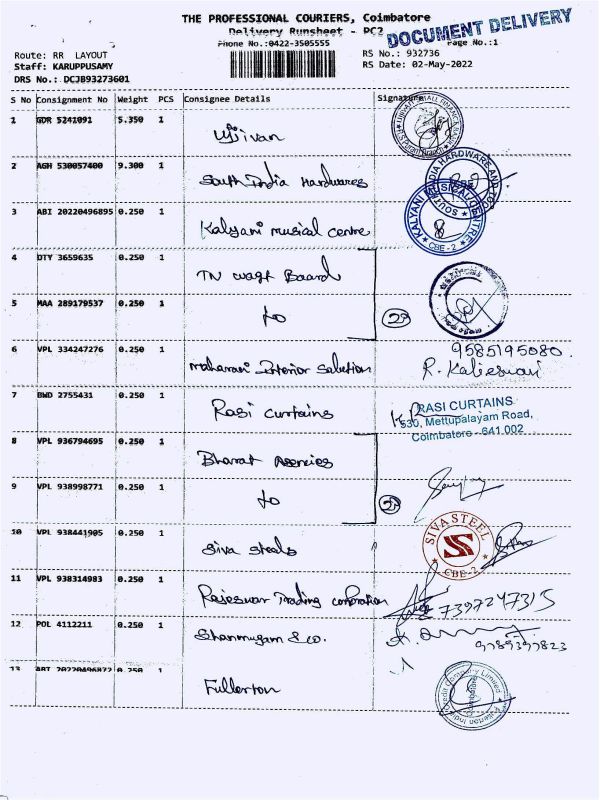 THE PROFESSIONAL COURIERS, Coimbatore
Delivery Runsheet - PC2
DOCUMENT DELIVERY
Phone No.:0422-3505555
Page No.:1
Route: RR LAYOUT
RS No.: 932736
Staff: KARUPPUSAMY
RS Date: 02-May-2022
DRS No.: DCJB93273601
S No Consignment No Weight PCS Consignee Details Signature
1 GDR 5241091 5.350 1 Ujjivan
2 AGH 530057400 9.300 1 South India Hardwares
3 ABI 20220496895 0.250 1 Kalyani musical centre
KALYANI MUSICAL CENTRE
CBE-2
4 DTY 3659635 0.250 1 TN waqf Board
5 MAA 289179537 0.250 1 to
6 VPL 334247276 0.250 1 Maharani Interior Solution
9585195080.
R. Kalieswari
7 BWD 2755431 0.250 1 Rasi curtains
RASI CURTAINS
530, Mettupalayam Road,
Coimbatore - 641 002
8 VPL 936794695 0.250 1 Bharat Agencies
9 VPL 938998771 0.250 1 to
10 VPL 938441905 0.250 1 Siva Steels
SIVA STEEL
CBE-2
11 VPL 938314983 0.250 1 Rajeswar Trading corporation
7397247315
12 POL 4112211 0.250 1 Shanmugam & co.
9789397823
13 ABT 20220496872 0.250 1 Fullerton